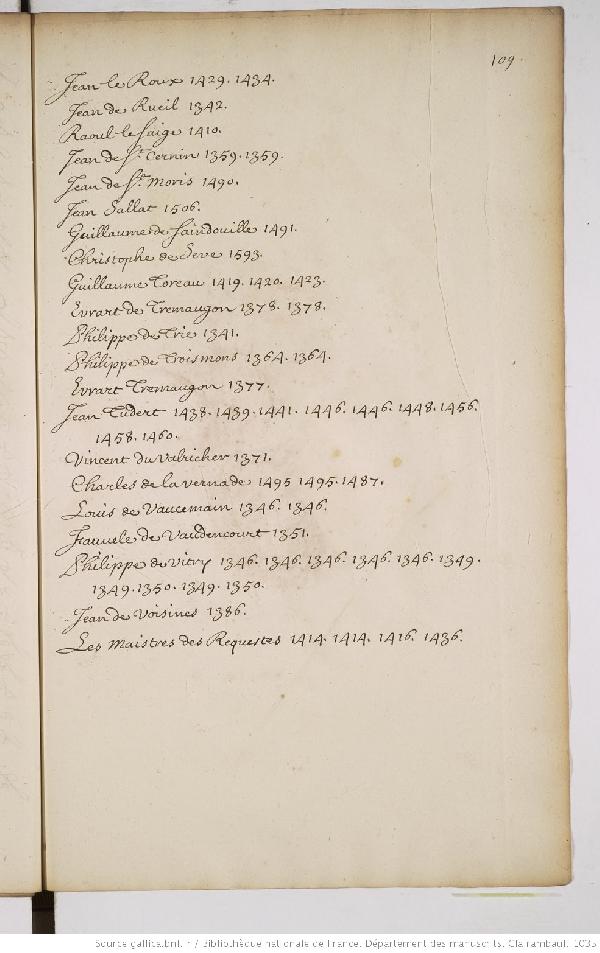 109.
Jean le Roux 1429. 1434.
Jean de Rueil 1342.
Raoul le Saige 1410.
Jean de St. Cernin 1359. 1359.
Jean de St. Moris 1490.
Jean Sallat 1506.
Guillaume de Saindouille 1491.
Christophe de Seve 1593.
Guillaume Toreau 1419. 1420. 1423.
Evrart de Tremaugon 1378. 1378.
Philippe de Trie 1341.
Philippe de Troismons 1364. 1364.
Evrart Tremaugon 1377.
Jean Tudert 1438. 1439. 1441. 1446. 1446. 1448. 1456.
1458. 1460.
Vincent du Valricher 1371.
Charles de la vernade 1495 1495. 1487.
Louis de Vaucemain 1346. 1346.
de Vaudencourt 1351.
Philippe de Vitry 1346. 1346. 1346. 1346. 1346. 1349.
1349. 1350. 1349. 1350.
Jean de Voisines 1386.
Les Maistres des Requestes 1414. 1414. 1416. 1436.
Source gallica.bnf.fr / Bibliothèque nationale de France. Département des manuscrits. Clairambault 1035